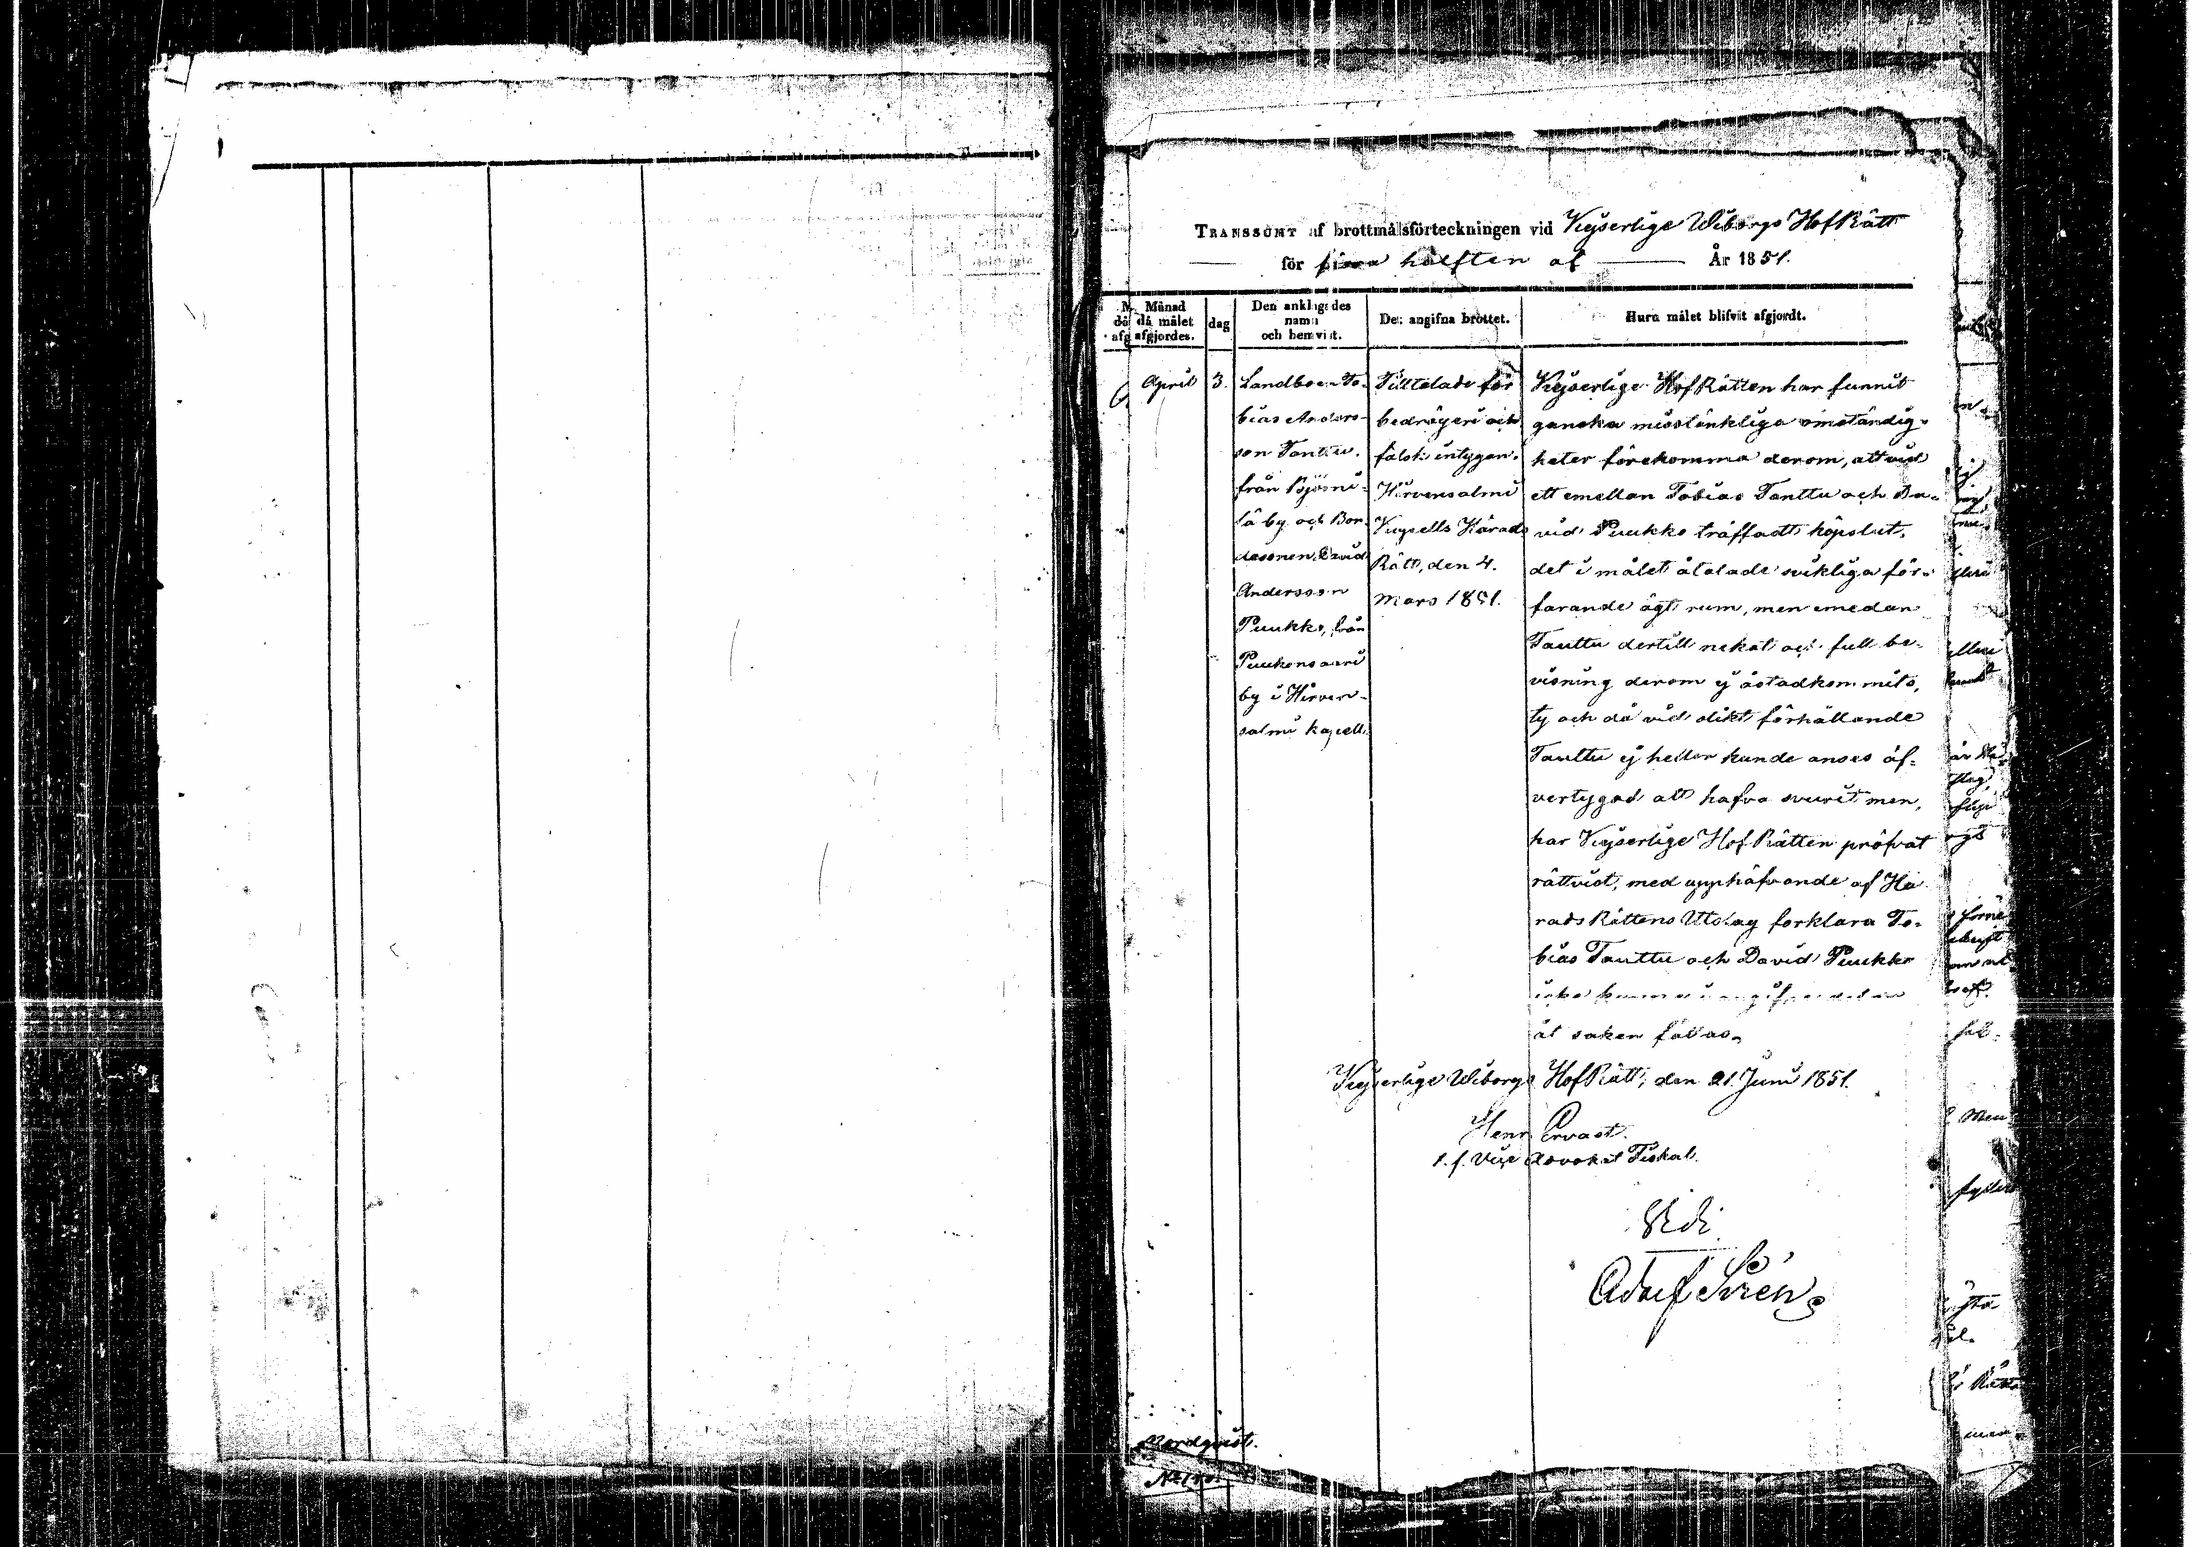 TRANSSUMT af brottmålsförteckningen vid Kejserlige Wiborgs HofRätt
för första hälften af År 1851.
Månad
då målet
afgjordes.
dag
Den anklagades
namn
och hemvist.
Det angifna brottet.
Huru målet blifvit afgjordt.
April
3.
Landboen To-
bias Anders-
son Tanttu,
från Björni-
lä by och Bon-
desonen David
Andersson
Puukko, från
Puukonsaari
by i Hirven-
salmi kapell.
Tilltalade för
bedrägeri och
falsk intygan.
Hirvensalmi
Kapells Härads
Rätt, den 4.
Mars 1851.
Kejserlige HofRätten har funnit
ganska misstänkliga omständig-
heter förekomma derom, att vid
ett emellan Tobias Tanttu och Da-
vid Puukko träffadt köpslut,
det i målet åtalade svikliga för-
farande ägt rum, men emedan
Tanttu dertill nekat och full be-
visning derom ej åstadkommits,
ty och då vid slikt förhållande
Tanttu ej heller kunde anses öf-
vertygad att hafva svurit men,
har Kejserlige HofRätten pröfvat
rättvist, med upphäfvande af Hä-
radsRättens Utslag förklara To-
bias Tanttu och David Puukko
icke kunna i
åt saken fällas.
Kejserlige Wiborgs HofRätt, den 21. Juni 1851.
Henr Ervast.
t. f. Vice Advokat Fiskal.
Vidi
Adolf Sirén
Nordqvist.